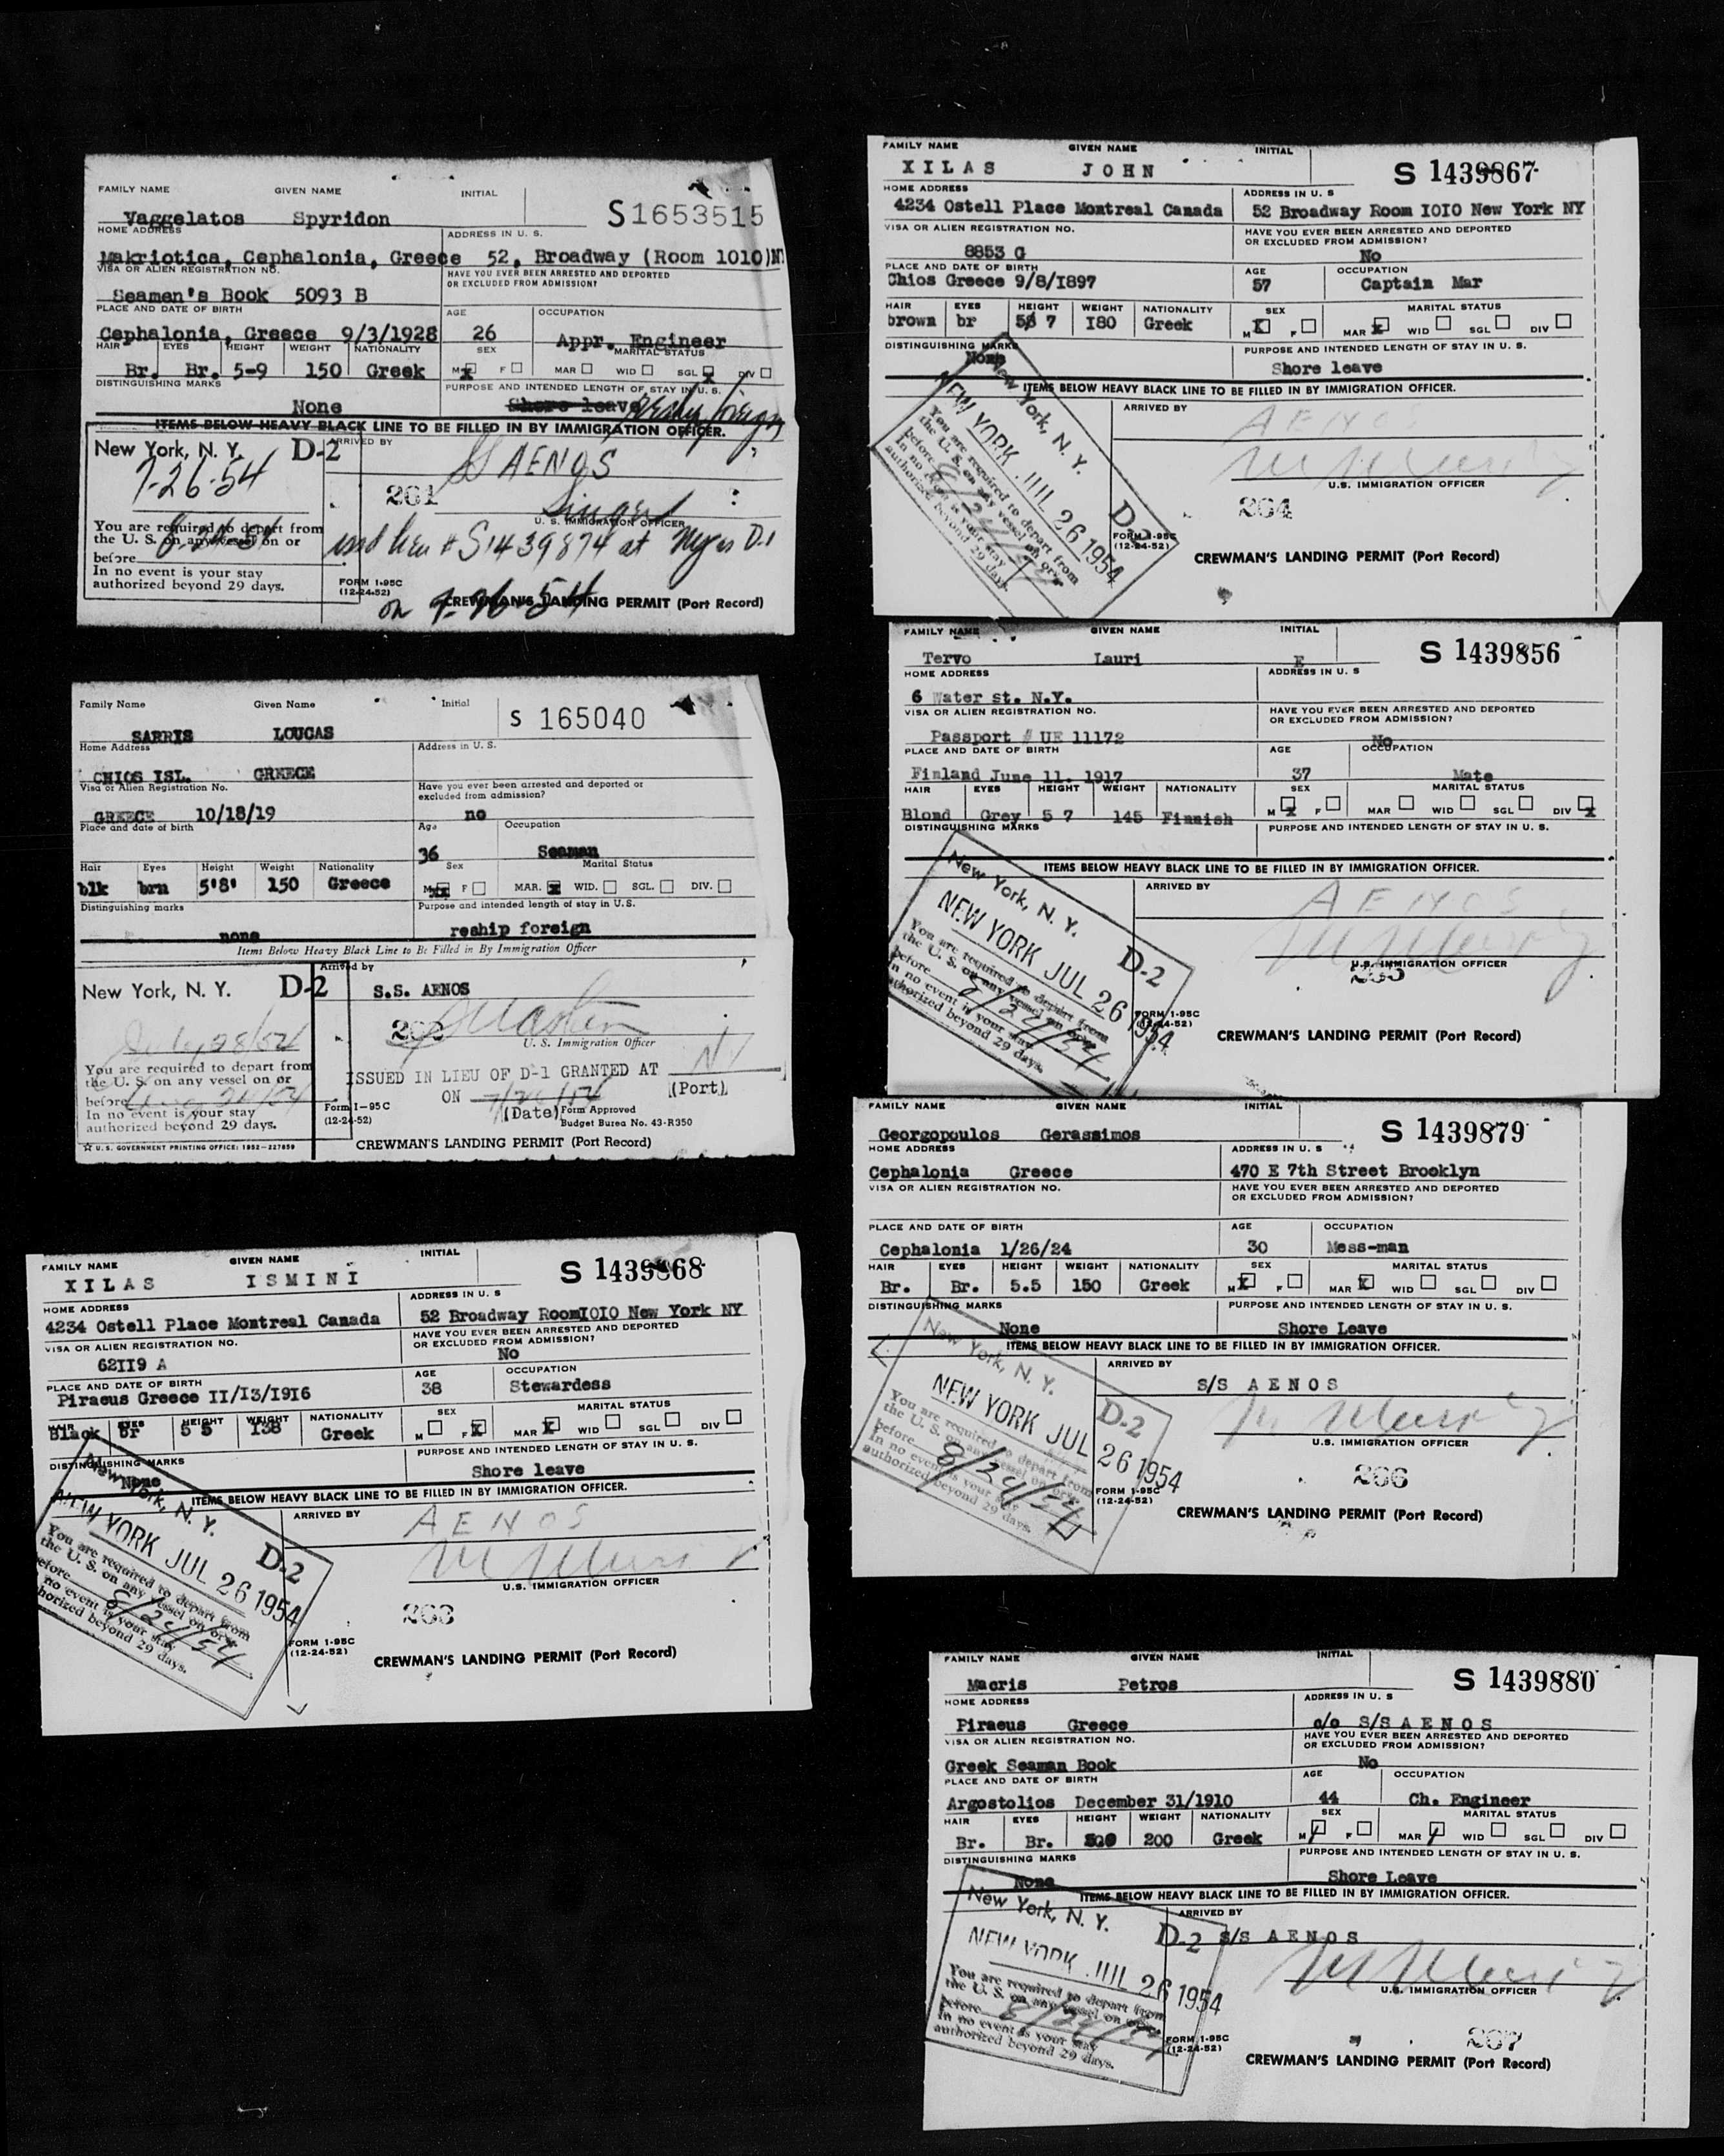 FAMILY NAME GIVEN NAME INITIAL
Vaggelatos Spyridon S1653515
HOME ADDRESS ADDRESS IN U. S.
Makriotica, Cephalonia, Greece 52, Broadway (Room 1010)
VISA OR ALIEN REGISTRATION NO. HAVE YOU EVER BEEN ARRESTED AND DEPORTED
OR EXCLUDED FROM ADMISSION?
Seamen's Book 5093 B
PLACE AND DATE OF BIRTH AGE OCCUPATION
Cephalonia, Greece 9/3/1928 26 Appr. Engineer
HAIR EYES HEIGHT WEIGHT NATIONALITY SEX MARITAL STATUS
Br. Br. 5-9 150 Greek M X F MAR WID SGL X DIV
DISTINGUISHING MARKS PURPOSE AND INTENDED LENGTH OF STAY IN U. S.
None Shore leave
ITEMS BELOW HEAVY BLACK LINE TO BE FILLED IN BY IMMIGRATION OFFICER.
New York, N. Y. D-2 ARRIVED BY
7-26-54 AENOS
261
You are required to depart from U. S. IMMIGRATION OFFICER
the U. S. on any vessel on or
before
#S1439874 at D.1
In no event is your stay
authorized beyond 29 days. FORM 1-95C
(12-24-52)
on 7-26-54
CREWMAN'S LANDING PERMIT (Port Record)
Family Name Given Name Initial
SARRIS LOUCAS S 165040
Home Address Address in U. S.
CHIOS ISL. GREECE
Visa or Alien Registration No. Have you ever been arrested and deported or
excluded from admission?
GREECE 10/18/19 no
Place and date of birth Age Occupation
36 Seaman
Hair Eyes Height Weight Nationality Sex Marital Status
blk brn 5'8' 150 Greece M F MAR. WID. SGL. DIV.
Distinguishing marks Purpose and intended length of stay in U.S.
none reship foreign
Items Below Heavy Black Line to Be Filled in By Immigration Officer
New York, N. Y. D-2 Arrived by
S.S. AENOS
July 28/54
U. S. Immigration Officer
You are required to depart from
the U. S. on any vessel on or
before
ISSUED IN LIEU OF D-1 GRANTED AT NY
(Port)
ON
(Date)
In no event is your stay
authorized beyond 29 days.
Form 1-95C
(12-24-52)
Form Approved
Budget Burea No. 43-R350
☆ U. S. GOVERNMENT PRINTING OFFICE: 1952-227859
CREWMAN'S LANDING PERMIT (Port Record)
FAMILY NAME GIVEN NAME INITIAL
XILAS ISMINI S 1439868
HOME ADDRESS ADDRESS IN U. S
4234 Ostell Place Montreal Canada 52 Broadway RoomIOIO New York NY
VISA OR ALIEN REGISTRATION NO. HAVE YOU EVER BEEN ARRESTED AND DEPORTED
OR EXCLUDED FROM ADMISSION?
62II9 A No
PLACE AND DATE OF BIRTH AGE OCCUPATION
Piraeus Greece II/I3/I9I6 38 Stewardess
HAIR EYES HEIGHT WEIGHT NATIONALITY SEX MARITAL STATUS
Black br 5 5 138 Greek M F X MAR X WID SGL DIV
DISTINGUISHING MARKS PURPOSE AND INTENDED LENGTH OF STAY IN U. S.
None Shore leave
ITEMS BELOW HEAVY BLACK LINE TO BE FILLED IN BY IMMIGRATION OFFICER.
New York, N. Y. D-2
ARRIVED BY AENOS
NEW YORK JUL 26 1954
You are required to depart from
the U. S. on any vessel on or
before 8/24/54
no event is your stay
authorized beyond 29 days.
U.S. IMMIGRATION OFFICER
263
FORM 1-95C
(12-24-52)
CREWMAN'S LANDING PERMIT (Port Record)
FAMILY NAME GIVEN NAME INITIAL
XILAS JOHN S 1439867
HOME ADDRESS ADDRESS IN U. S
4234 Ostell Place Montreal Canada 52 Broadway Room IOIO New York NY
VISA OR ALIEN REGISTRATION NO. HAVE YOU EVER BEEN ARRESTED AND DEPORTED
OR EXCLUDED FROM ADMISSION?
8853 G No
PLACE AND DATE OF BIRTH AGE OCCUPATION
Chios Greece 9/8/I897 57 Captain Mar
HAIR EYES HEIGHT WEIGHT NATIONALITY SEX MARITAL STATUS
brown br 7 I80 Greek M X F MAR X WID SGL DIV
DISTINGUISHING MARKS PURPOSE AND INTENDED LENGTH OF STAY IN U. S.
None Shore leave
ITEMS BELOW HEAVY BLACK LINE TO BE FILLED IN BY IMMIGRATION OFFICER.
New York, N. Y. D-2
ARRIVED BY AENOS
NEW YORK JUL 26 1954
You are required to depart from
the U. S. on any vessel on or
before 8/24/54
In no event is your stay
authorized beyond 29 days.
U.S. IMMIGRATION OFFICER
264
FORM 1-95C
(12-24-52)
CREWMAN'S LANDING PERMIT (Port Record)
FAMILY NAME GIVEN NAME INITIAL
Tervo Lauri E S 1439856
HOME ADDRESS ADDRESS IN U. S
6 Water st. N.Y.
VISA OR ALIEN REGISTRATION NO. HAVE YOU EVER BEEN ARRESTED AND DEPORTED
OR EXCLUDED FROM ADMISSION?
Passport # UE 11172 No
PLACE AND DATE OF BIRTH AGE OCCUPATION
Finland June 11. 1917 37 Mate
HAIR EYES HEIGHT WEIGHT NATIONALITY SEX MARITAL STATUS
Blond Grey 5 7 145 Finnish M X F MAR WID SGL DIV X
DISTINGUISHING MARKS PURPOSE AND INTENDED LENGTH OF STAY IN U. S.
ITEMS BELOW HEAVY BLACK LINE TO BE FILLED IN BY IMMIGRATION OFFICER.
New York, N. Y. D-2
ARRIVED BY AENOS
NEW YORK JUL 26 1954
You are required to depart from
the U. S. on any vessel on or
before 8/24/54
In no event is your stay
authorized beyond 29 days.
U.S. IMMIGRATION OFFICER
265
FORM 1-95C
(12-24-52)
CREWMAN'S LANDING PERMIT (Port Record)
FAMILY NAME GIVEN NAME INITIAL
Georgopoulos Gerassimos S 1439879
HOME ADDRESS ADDRESS IN U. S
Cephalonia Greece 470 E 7th Street Brooklyn
VISA OR ALIEN REGISTRATION NO. HAVE YOU EVER BEEN ARRESTED AND DEPORTED
OR EXCLUDED FROM ADMISSION?
PLACE AND DATE OF BIRTH AGE OCCUPATION
Cephalonia 1/26/24 30 Mess-man
HAIR EYES HEIGHT WEIGHT NATIONALITY SEX MARITAL STATUS
Br. Br. 5.5 150 Greek M X F MAR X WID SGL DIV
DISTINGUISHING MARKS PURPOSE AND INTENDED LENGTH OF STAY IN U. S.
None Shore Leave
ITEMS BELOW HEAVY BLACK LINE TO BE FILLED IN BY IMMIGRATION OFFICER.
New York, N. Y. D-2
ARRIVED BY
S/S AENOS
NEW YORK JUL 26 1954
You are required to depart from
the U. S. on any vessel on or
before 8/24/54
In no event is your stay
authorized beyond 29 days.
U.S. IMMIGRATION OFFICER
266
FORM 1-95C
(12-24-52)
CREWMAN'S LANDING PERMIT (Port Record)
FAMILY NAME GIVEN NAME INITIAL
Macris Petros S 1439880
HOME ADDRESS ADDRESS IN U. S
Piraeus Greece c/o S/S AENOS
VISA OR ALIEN REGISTRATION NO. HAVE YOU EVER BEEN ARRESTED AND DEPORTED
OR EXCLUDED FROM ADMISSION?
Greek Seaman Book No
PLACE AND DATE OF BIRTH AGE OCCUPATION
Argostolios December 31/1910 44 Ch. Engineer
HAIR EYES HEIGHT WEIGHT NATIONALITY SEX MARITAL STATUS
Br. Br. 200 Greek M F MAR WID SGL DIV
DISTINGUISHING MARKS PURPOSE AND INTENDED LENGTH OF STAY IN U. S.
None Shore Leave
ITEMS BELOW HEAVY BLACK LINE TO BE FILLED IN BY IMMIGRATION OFFICER.
New York, N. Y. D-2
ARRIVED BY
S/S AENOS
NEW YORK JUL 26 1954
You are required to depart from
the U. S. on any vessel on or
before 8/24/54
In no event is your stay
authorized beyond 29 days.
U.S. IMMIGRATION OFFICER
267
FORM 1-95C
(12-24-52)
CREWMAN'S LANDING PERMIT (Port Record)